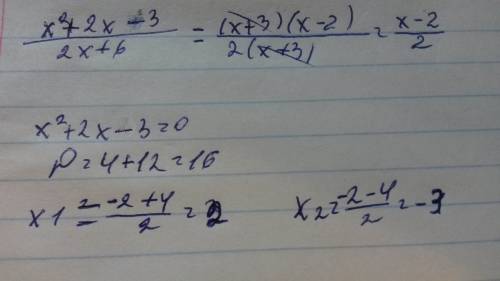 x²+2x-3 / 2x+6 = (x+3)(x-2) / 2(x+3) = x-2 / 2
x²+2x-3=0
D=4+12=16
x1 = -2+4 / 2 = 2
x2 = -2-4 / 2 = -3